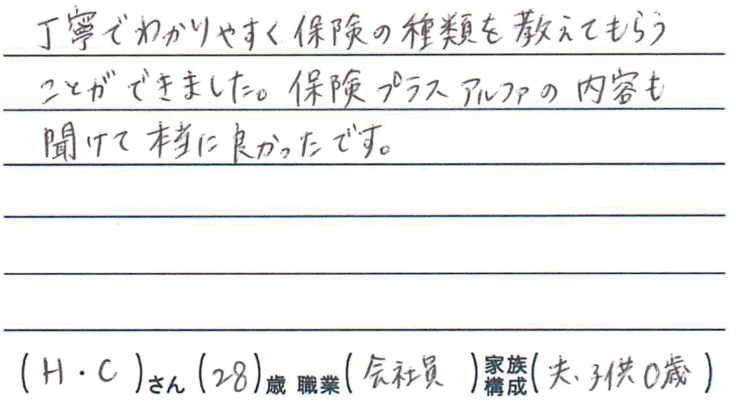 丁寧でわかりやすく保険の種類を教えてもらう
ことができました。保険プラスアルファの内容も
聞けて本当に良かったです。
(H・C)さん(28)歳 職業(会社員)家族構成(夫、子供0歳)